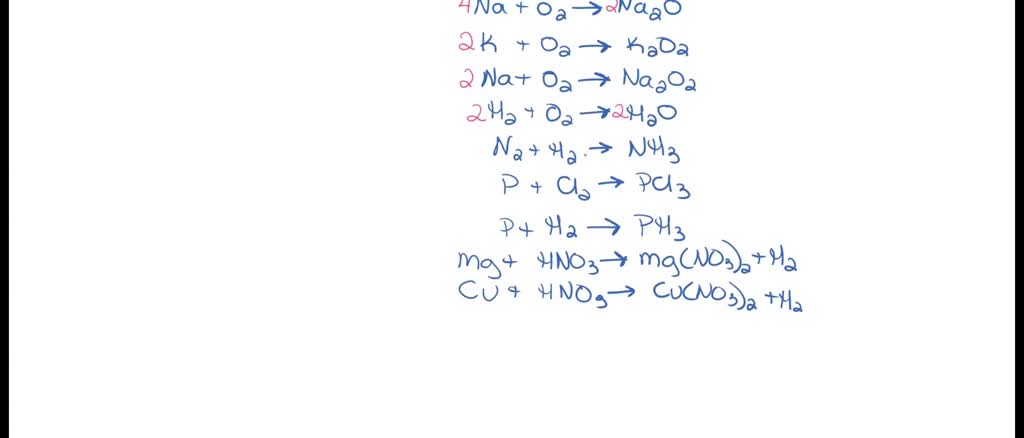 4Na + O₂ → 2Na₂O
2K + O₂ → K₂O₂
2Na + O₂ → Na₂O₂
2H₂ + O₂ → 2H₂O
N₂ + H₂ → NH₃
P + Cl₂ → PCl₃
P + H₂ → PH₃
Mg + HNO₃ → Mg(NO₃)₂ + H₂
Cu + HNO₃ → Cu(NO₃)₂ + H₂